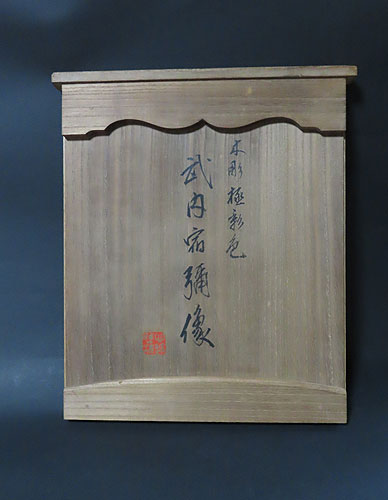 木彫極彩色
武内宿彌像